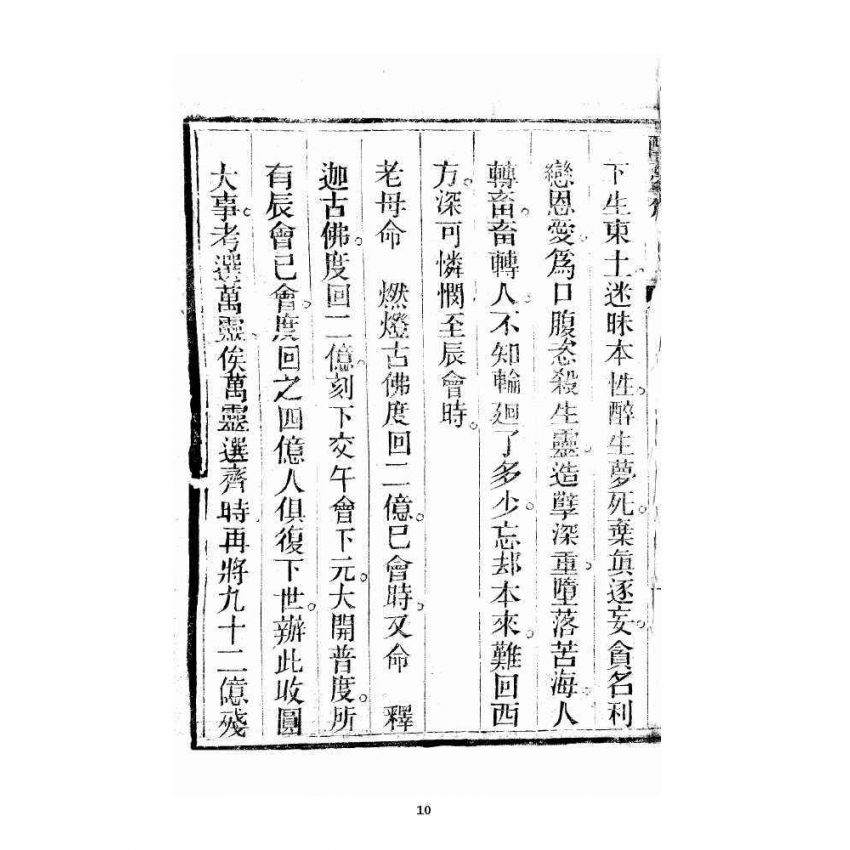 下生東土迷昧本性。醉生夢死。棄眞逐妄。貪名利
戀恩愛。爲口腹恣殺生靈。造孽深重。墮落苦海。人
轉畜。畜轉人。不知輪廻了多少。忘却本來。難回西
方。深可憐憫至辰會時。
老母命　燃燈古佛度回二億。巳會時。又命　釋
迦古佛。度回二億。刻下交午會下元。大開普度。所
有辰會巳會。度回之四億人俱復下世。辦此收圓
大事。考選萬靈俟萬靈選齊時再將九十二億殘
10